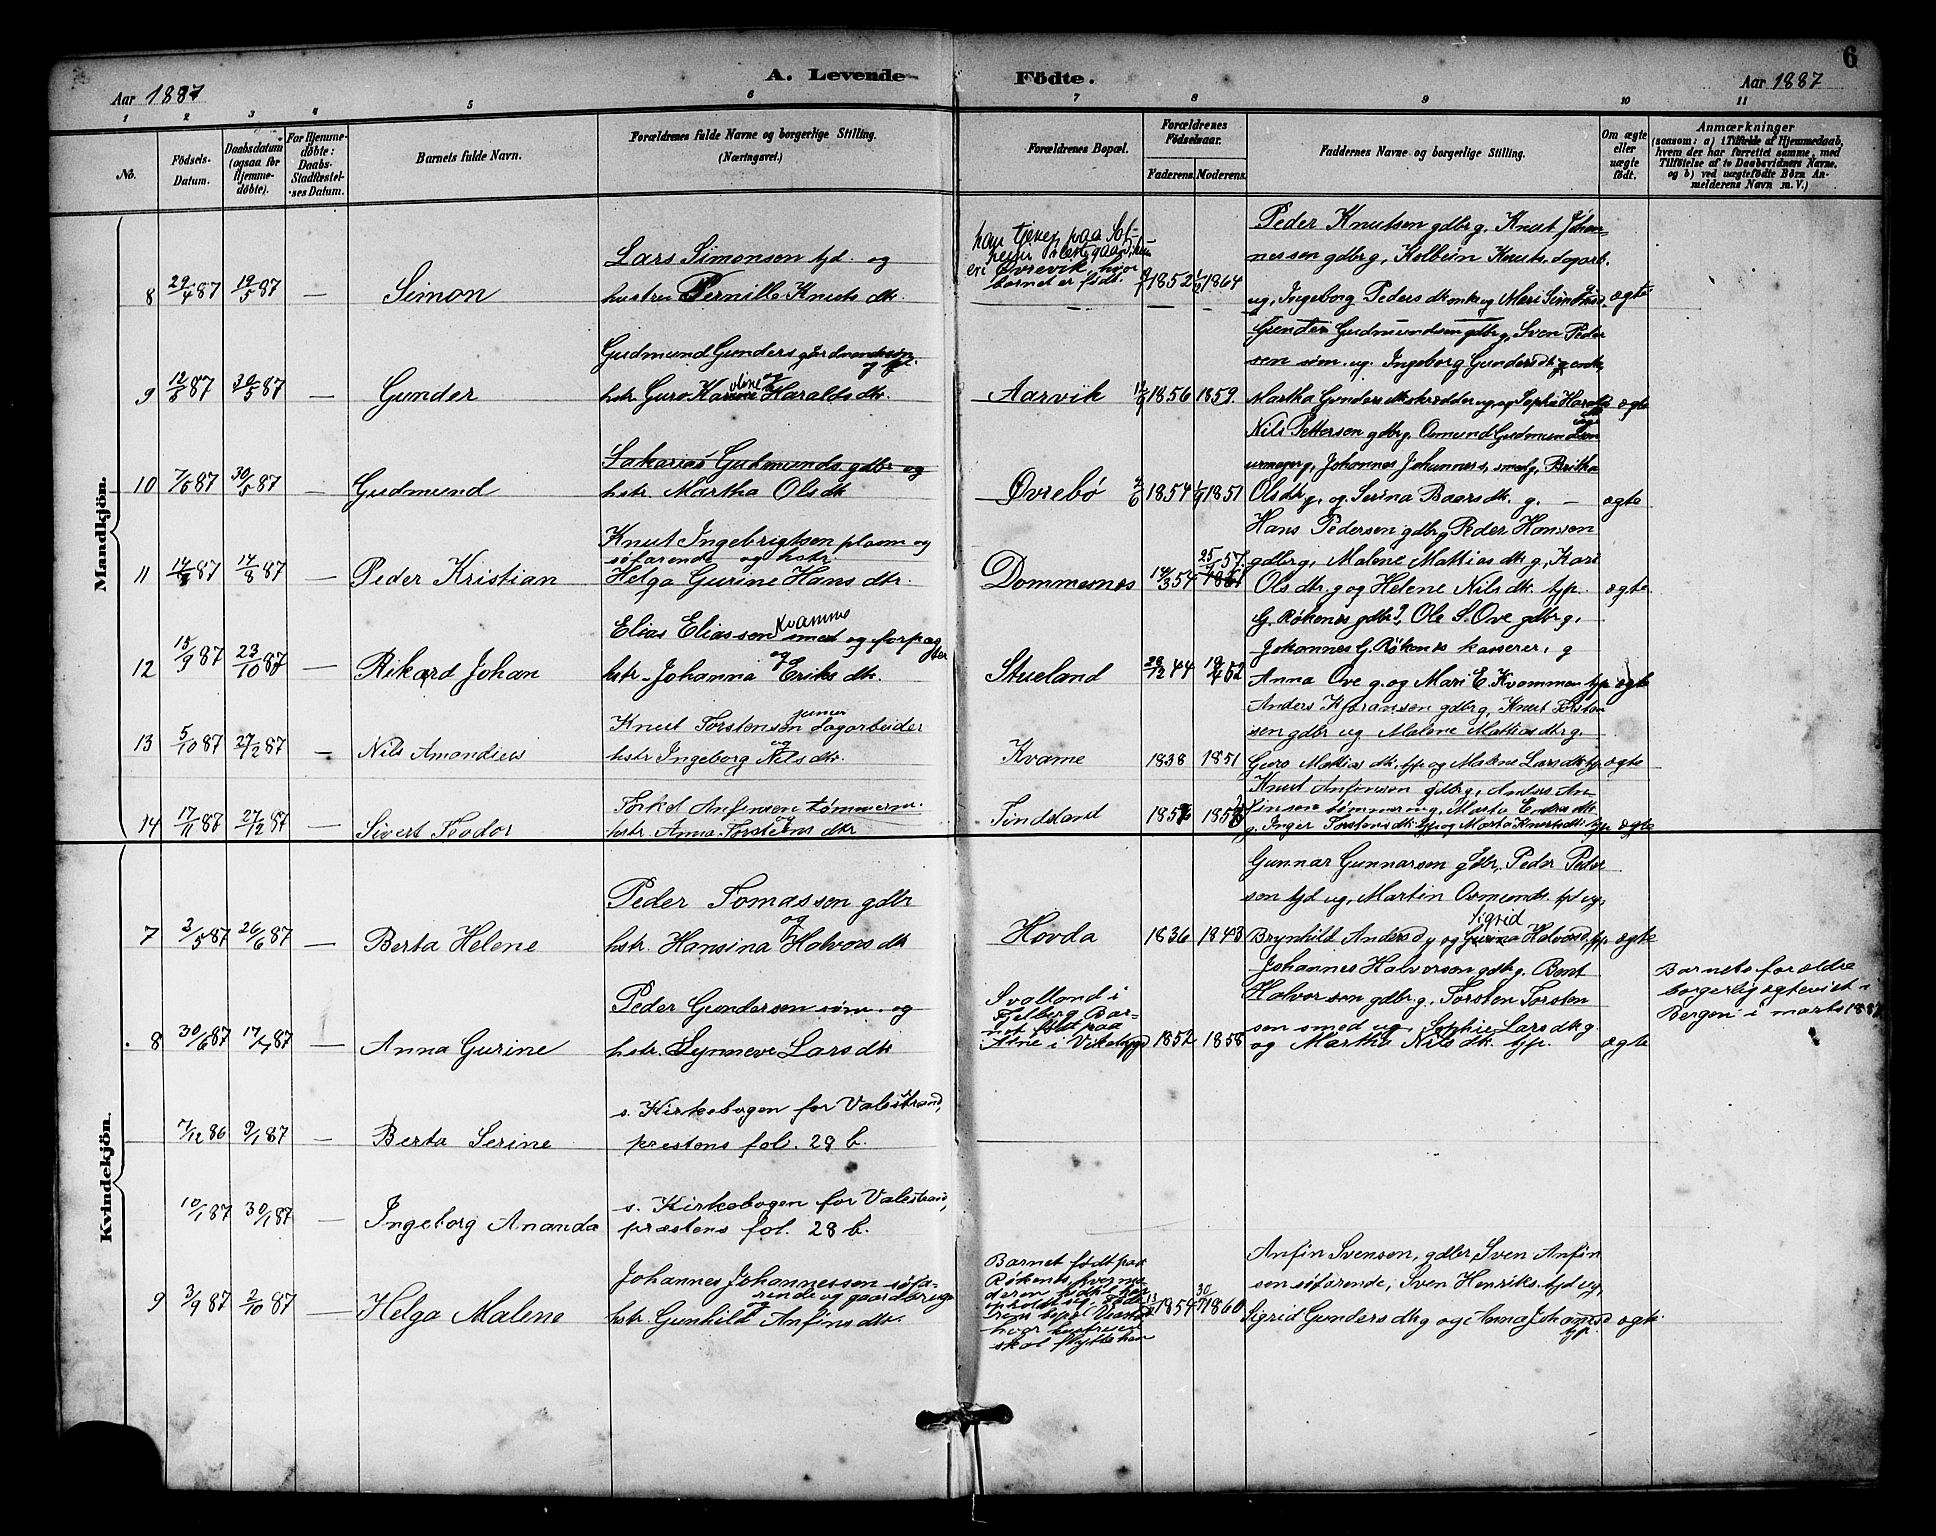 6
A. Levende Födte.
Aar 1887
Aar 1887
1 2 3 4 5 6 7 8 9 10 11
No.
Födsels-Datum.
Daabsdatum (ogsaa for Hjemmedøbte).
For Hjemmedøbte: Daabs-Stadfæstelses Datum.
Barnets fulde Navn.
Forældrenes fulde Navne og borgerlige Stilling. (Næringsvei.)
Forældrenes Bopæl.
Forældrenes Födselsaar.
Faderens. Moderens.
Faddernes Navne og borgerlige Stilling.
Om ægte eller uægte født.
Anmærkninger
(saasom: a) i Tilfælde af Hjemmedaab, hvem der har forrettet samme, med Tilföielse af to Daabsvidners Navne. og b) ved uægtefødte Börn Anmelderens Navn m. V.)
Mandkjön.
8 29/4 87 19/5 87 — Simon
Lars Simonsen tjd. og
hustru Pernille Knuts dtr.
han tjener paa
Øvrevik, hvor
barnet er født.
1852 1864
Peder Knutsen gdbr g, Knut Johan-
nessen gdbr g, Kolbein Knuts. sagarb.
ug, Ingeborg Peders dtr enke og Mari
ægte
9 12/5 87 30/5 87 — Gunder
Gudmund Gunders gårdmandssøn
hstr Guro Karine Haralds dtr.
Aarvik 1856 1859.
Gunder Gudmundsen gdbr g, Sven Peder
sen søm. ug. Ingeborg Gunders dtr enke,
Martha Gunders dtr skrædder ug. og Sophie Haralds
ægte
10 7/5 87 30/5 87 — Gudmund
Sakarias Gudmunds. gdbr og
hstr Martha Ols dtr
Øvrebø 1854 1851
Nils Pettersen gdbr g. Osmund Gudmundsen
urmager g, Johannes Johanness. smed g, Britha
Ols dtr g, og Serina Baars dtr. g. —
ægte
11 87 14/8 87 — Peder Kristian
Knut Ingebrigtsen plasm og
søfarende og hstr
Helga Gurine Hans dtr.
Dommesnes 14/3 54 25/ 57.
Hans Pedersen gdbr g Peder Hansen
gdbr g, Malene Mattias dtr g, Kari
Ols dtr. g og Helene Nils dtr. tjp.
ægte
12 15/9 87 23/10 87 — Rikard Johan
Elias Eliassen Kvamme smed og forpagter
og
hstr. Johanna Eriks dtr.
Stueland 28/12 44 52
G. Røkenes gdbr?, Ole S. Ove gdbr g,
Johannes G. Røkenes kasserer, g
Anna Ove g. og Mari E. Kvammen tjp
ægte
13 5/10 87 27/12 87 — Nils Amandius
Knut Torstensen junior Sagarbeider
og
hstr Ingeborg Nils dtr.
Kvame 1838 1851
Anders Kjoransen gdbr g, Knut Torsten
sen gdbr ug Malene Mattias dtr g.
Guro Mattias dtr. tjp og Malene Lars dtr tjp
ægte
14 17/11 87 27/12 87 — Sivert Teodor
Torkel Anfinsen tømmerm.
og
hstr. Anna Torsteins dtr
Tindeland
Knut Anfinsen gdbr g, Anders An-
finsen tømmerm g, Marta Endres dtr
g. Inger Torstens dtr. tjp og Marta Knuts dtr. tjp
ægte
Kvindekjön.
7 3/5 87 26/6 87 — Berta Helene
Peder Tomassen gdbr
og
hstr. Hansina Halvors dtr
Hovda 1836 1843
Gunnar Gunnarsen gdbr, Peder Peder
sen tjd ug, Martin Osmunds. tjd ug,
Sigrid
Brynhild Andersd g og Halvorsd. tjp.
ægte
8 30/6 87 17/7 87 — Anna Gurine
Peder Gundersen søm. og
hstr. Synneve Lars dtr
Svolland i
Fjelberg. Bar-
net født paa
Alne i Vikebygd
1852 1858
Johannes Halvorsen gdbr g. Bent
Halvorsen gdbr g. Torsten Torsten
sen smed ug Sophie Lars dtr g.
og Martha Nils dtr. tjp.
ægte
Barnets forældre
borgerlig ægteviet i
Bergen i marts 1887
7/12 86 9/1 87 — Berta Serine
s. Kirkebogen for Valestrand,
prestens fol. 28 b.
10/1 87 30/1 87 — Ingeborg Ananda
s. Kirkebogen for Valestrand,
præstens fol. 28 b.
9 3/9 87 2/10 87 — Helga Malene
Johannes Johannessen søfa-
rende og gaardbruger
og
hstr Gunhild Anfins dtr.
Barnet født paa
Røkenes, hvor mo-
deren
hvor hustruen
skal flytte hen
1854 1860
Anfin Svensen, gdbr, Sven Anfin
sen søfarende, Sven Henriks. tjd ug,
Sigrid Gunders dtr g og Anna Johannesd
tjp.
ægte.